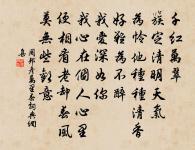 千紅萬翠
簇定清明天氣
為憐他種種清香
好難為不醉
我愛深如你
我心在個人心里
便相看老却春風
莫無些歡意
周邦彥萬里春